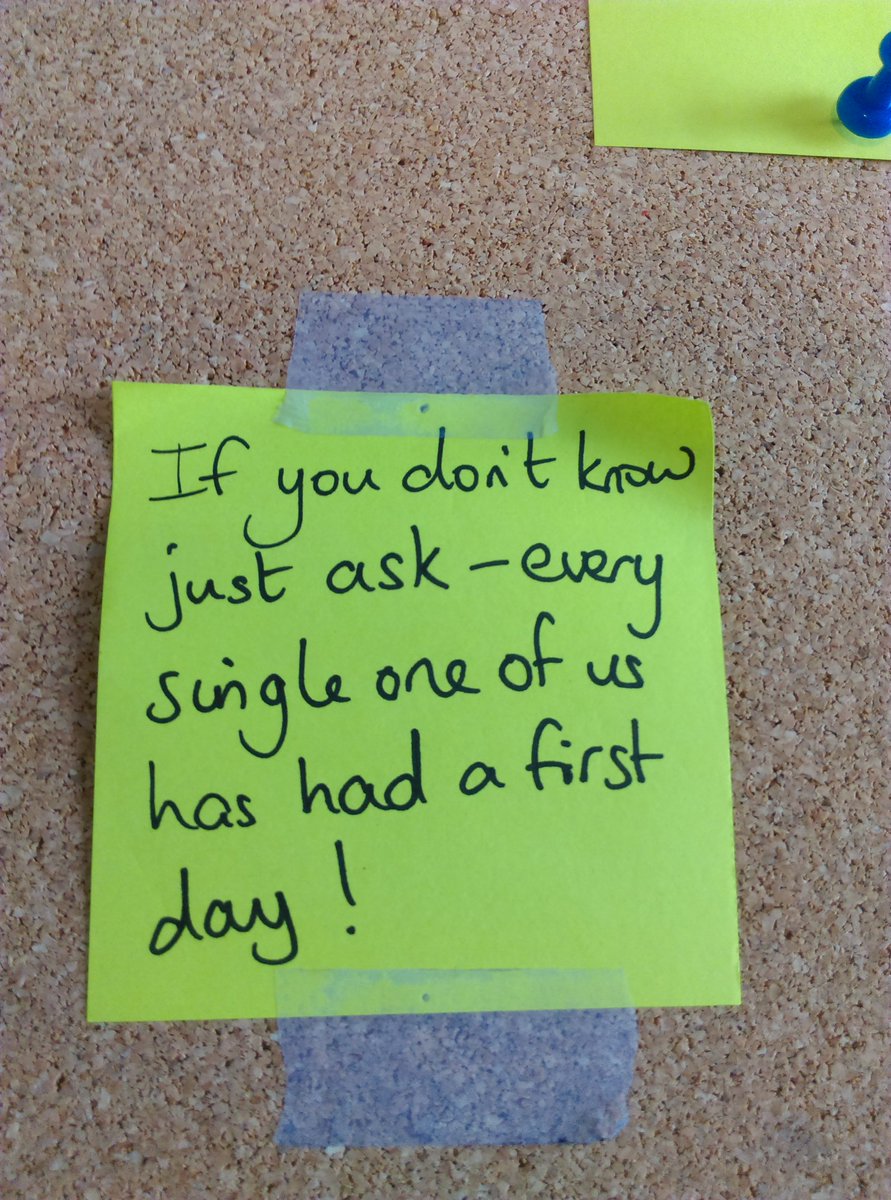 If you don't know
just ask – every
single one of us
has had a first
day!